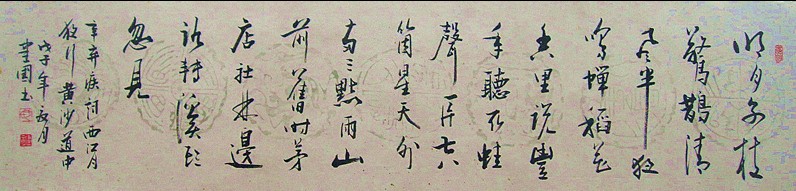 明月别枝
驚鵲清
風半夜
鳴蟬稻花
香里說豐
年聽取蛙
聲一片七八
箇星天外
兩三點雨山
前舊时茅
店社林邊
路轉溪頭
忽見
辛弃疾詞西江月
夜行黄沙道中
戊子年月
國书